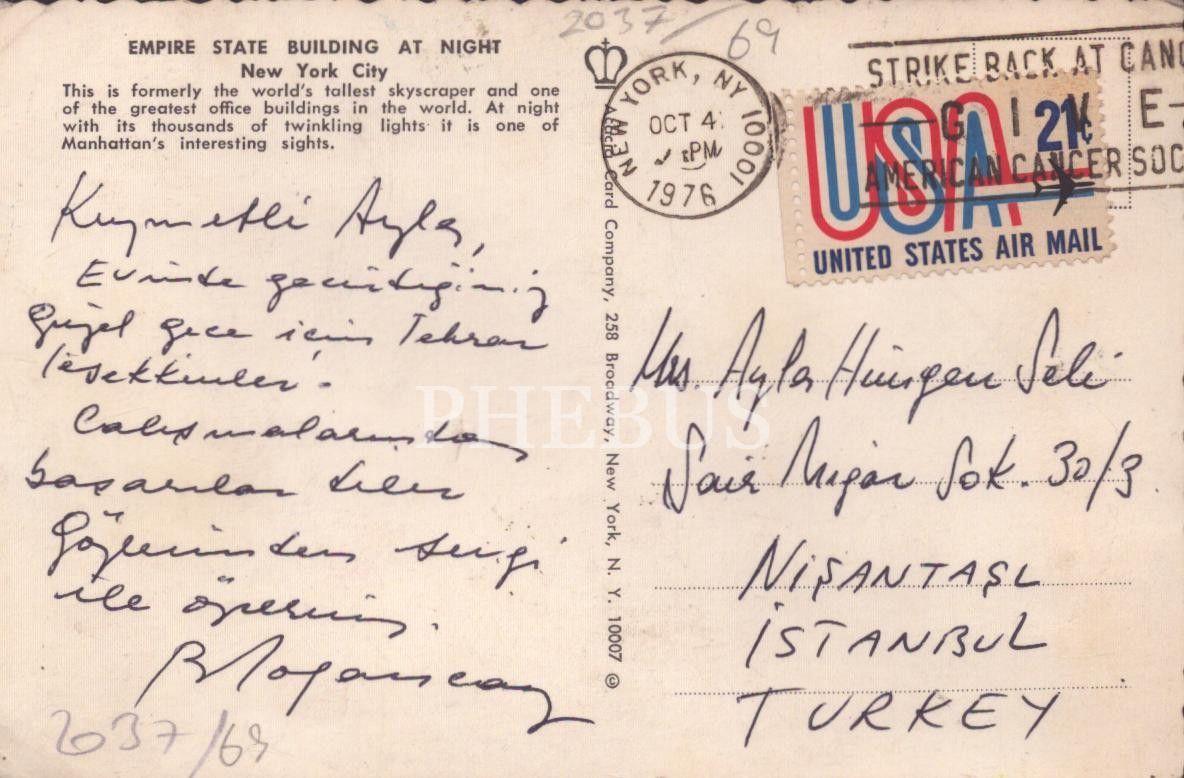 2037/69
EMPIRE STATE BUILDING AT NIGHT
New York City
This is formerly the world's tallest skyscraper and one
of the greatest office buildings in the world. At night
with its thousands of twinkling lights it is one of
Manhattan's interesting sights.
Kıymetli Ayla,
Evinde geçirdiğimiz
güzel gece için Tekrar
teşekkürler.
Çalışmalarında
başarılar diler
Gözlerinden sevgi
ile öperim.
B Dogancay
2037/69
Card Company, 258 Broadway, New York, N. Y. 10007 ©
NEW YORK, NY 10001
OCT 4
PM
1976
STRIKE BACK AT CANC
GIVE
AMERICAN CANCER SOC
USA 21c
UNITED STATES AIR MAIL
Mrs. Ayla Hüngen Seli
Şair Nigar Sok. 30/3
NİŞANTAŞI
İSTANBUL
TURKEY
PHEBUS